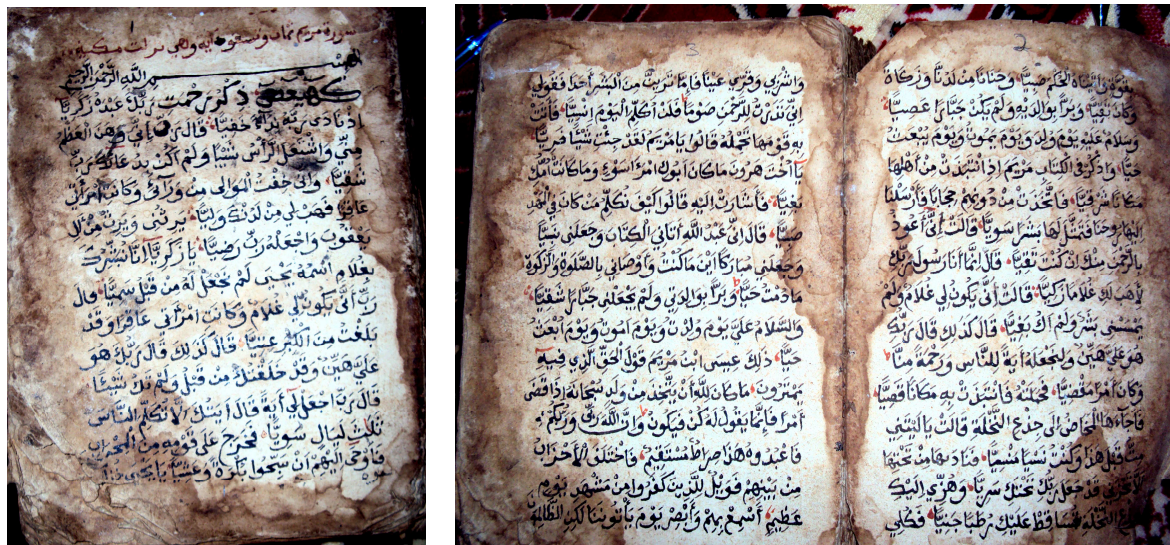 سورة مريم ثمان وتسعون آية وهي مكية
بسم الله الرحمن الرحيم
كهيعص ذكر رحمت ربك عبده زكريا
اذ نادى ربه نداء خفيا قال رب اني وهن العظم
مني واشتعل الرأس شيبا ولم أكن بدعائك رب
شقيا واني خفت الموالي من ورائي وكانت امرأتي
عاقرا فهب لي من لدنك وليا يرثني ويرث من ال
يعقوب واجعله رب رضيا يا زكريا انا نبشرك
بغلام اسمه يحيى لم نجعل له من قبل سميا قال
رب أنى يكون لي غلام وكانت امرأتي عاقرا وقد
بلغت من الكبر عتيا قال كذلك قال ربك هو
علي هين وقد خلقتك من قبل ولم تك شيئا
قال رب اجعل لي آية قال آيتك الا تكلم الناس
ثلث ليال سويا فخرج على قومه من المحراب
فاوحى اليهم ان سبحوا بكرة وعشيا يا يحيى خذ
2
بقوة وآتيناه الحكم صبيا وحنانا من لدنا وزكاة
وكان تقيا وبرا بوالديه ولم يكن جبارا عصيا
وسلام عليه يوم ولد ويوم يموت ويوم يبعث
حيا واذكر في الكتاب مريم إذ انتبذت من أهلها
مكانا شرقيا فاتخذت من دونهم حجابا فأرسلنا
اليها روحنا فتمثل لها بشرا سويا قالت إني أعوذ
بالرحمن منك ان كنت تقيا قال إنما أنا رسول ربك
لأهب لك غلاما زكيا قالت أنى يكون لي غلام ولم
يمسسني بشر ولم اك بغيا قال كذلك قال ربك
هو علي هين ولنجعله آية للناس ورحمة منا
وكان أمرا مقضيا فحملته فانتبذت به مكانا قصيا
فأجاءها المخاض إلى جذع النخلة قالت يا ليتني
مت قبل هذا وكنت نسيا منسيا فناداها من تحتها
ألا تحزني قد جعل ربك تحتك سريا وهزي إليك
بجذع النخلة تساقط عليك رطبا جنيا فكلي
3
واشربي وقري عينا فإما ترين من البشر أحدا فقولي
إني نذرت للرحمن صوما فلن أكلم اليوم انسيا فأتت
به قومها تحمله قالوا يا مريم لقد جئت شيئا فريا
يا أخت هرون ما كان ابوك امرأ سوء وما كانت أمك
بغيا فأشارت اليه قالوا كيف نكلم من كان في المهد
صبيا قال اني عبد الله آتاني الكتاب وجعلني نبيا
وجعلني مباركا أين ما كنت وأوصاني بالصلوة والزكوة
ما دمت حيا وبرا بوالدتي ولم يجعلني جبارا شقيا
والسلام علي يوم ولدت ويوم أموت ويوم ابعث
حيا ذلك عيسى ابن مريم قول الحق الذي فيه
يمترون ما كان لله أن يتخذ من ولد سبحانه إذا قضى
أمرا فإنما يقول له كن فيكون وان الله ربي وربكم
فاعبدوه هذا صراط مستقيم فاختلف الأحزاب
من بينهم فويل للذين كفروا من مشهد يوم
عظيم أسمع بهم وأبصر يوم يأتوننا لكن الظالمون